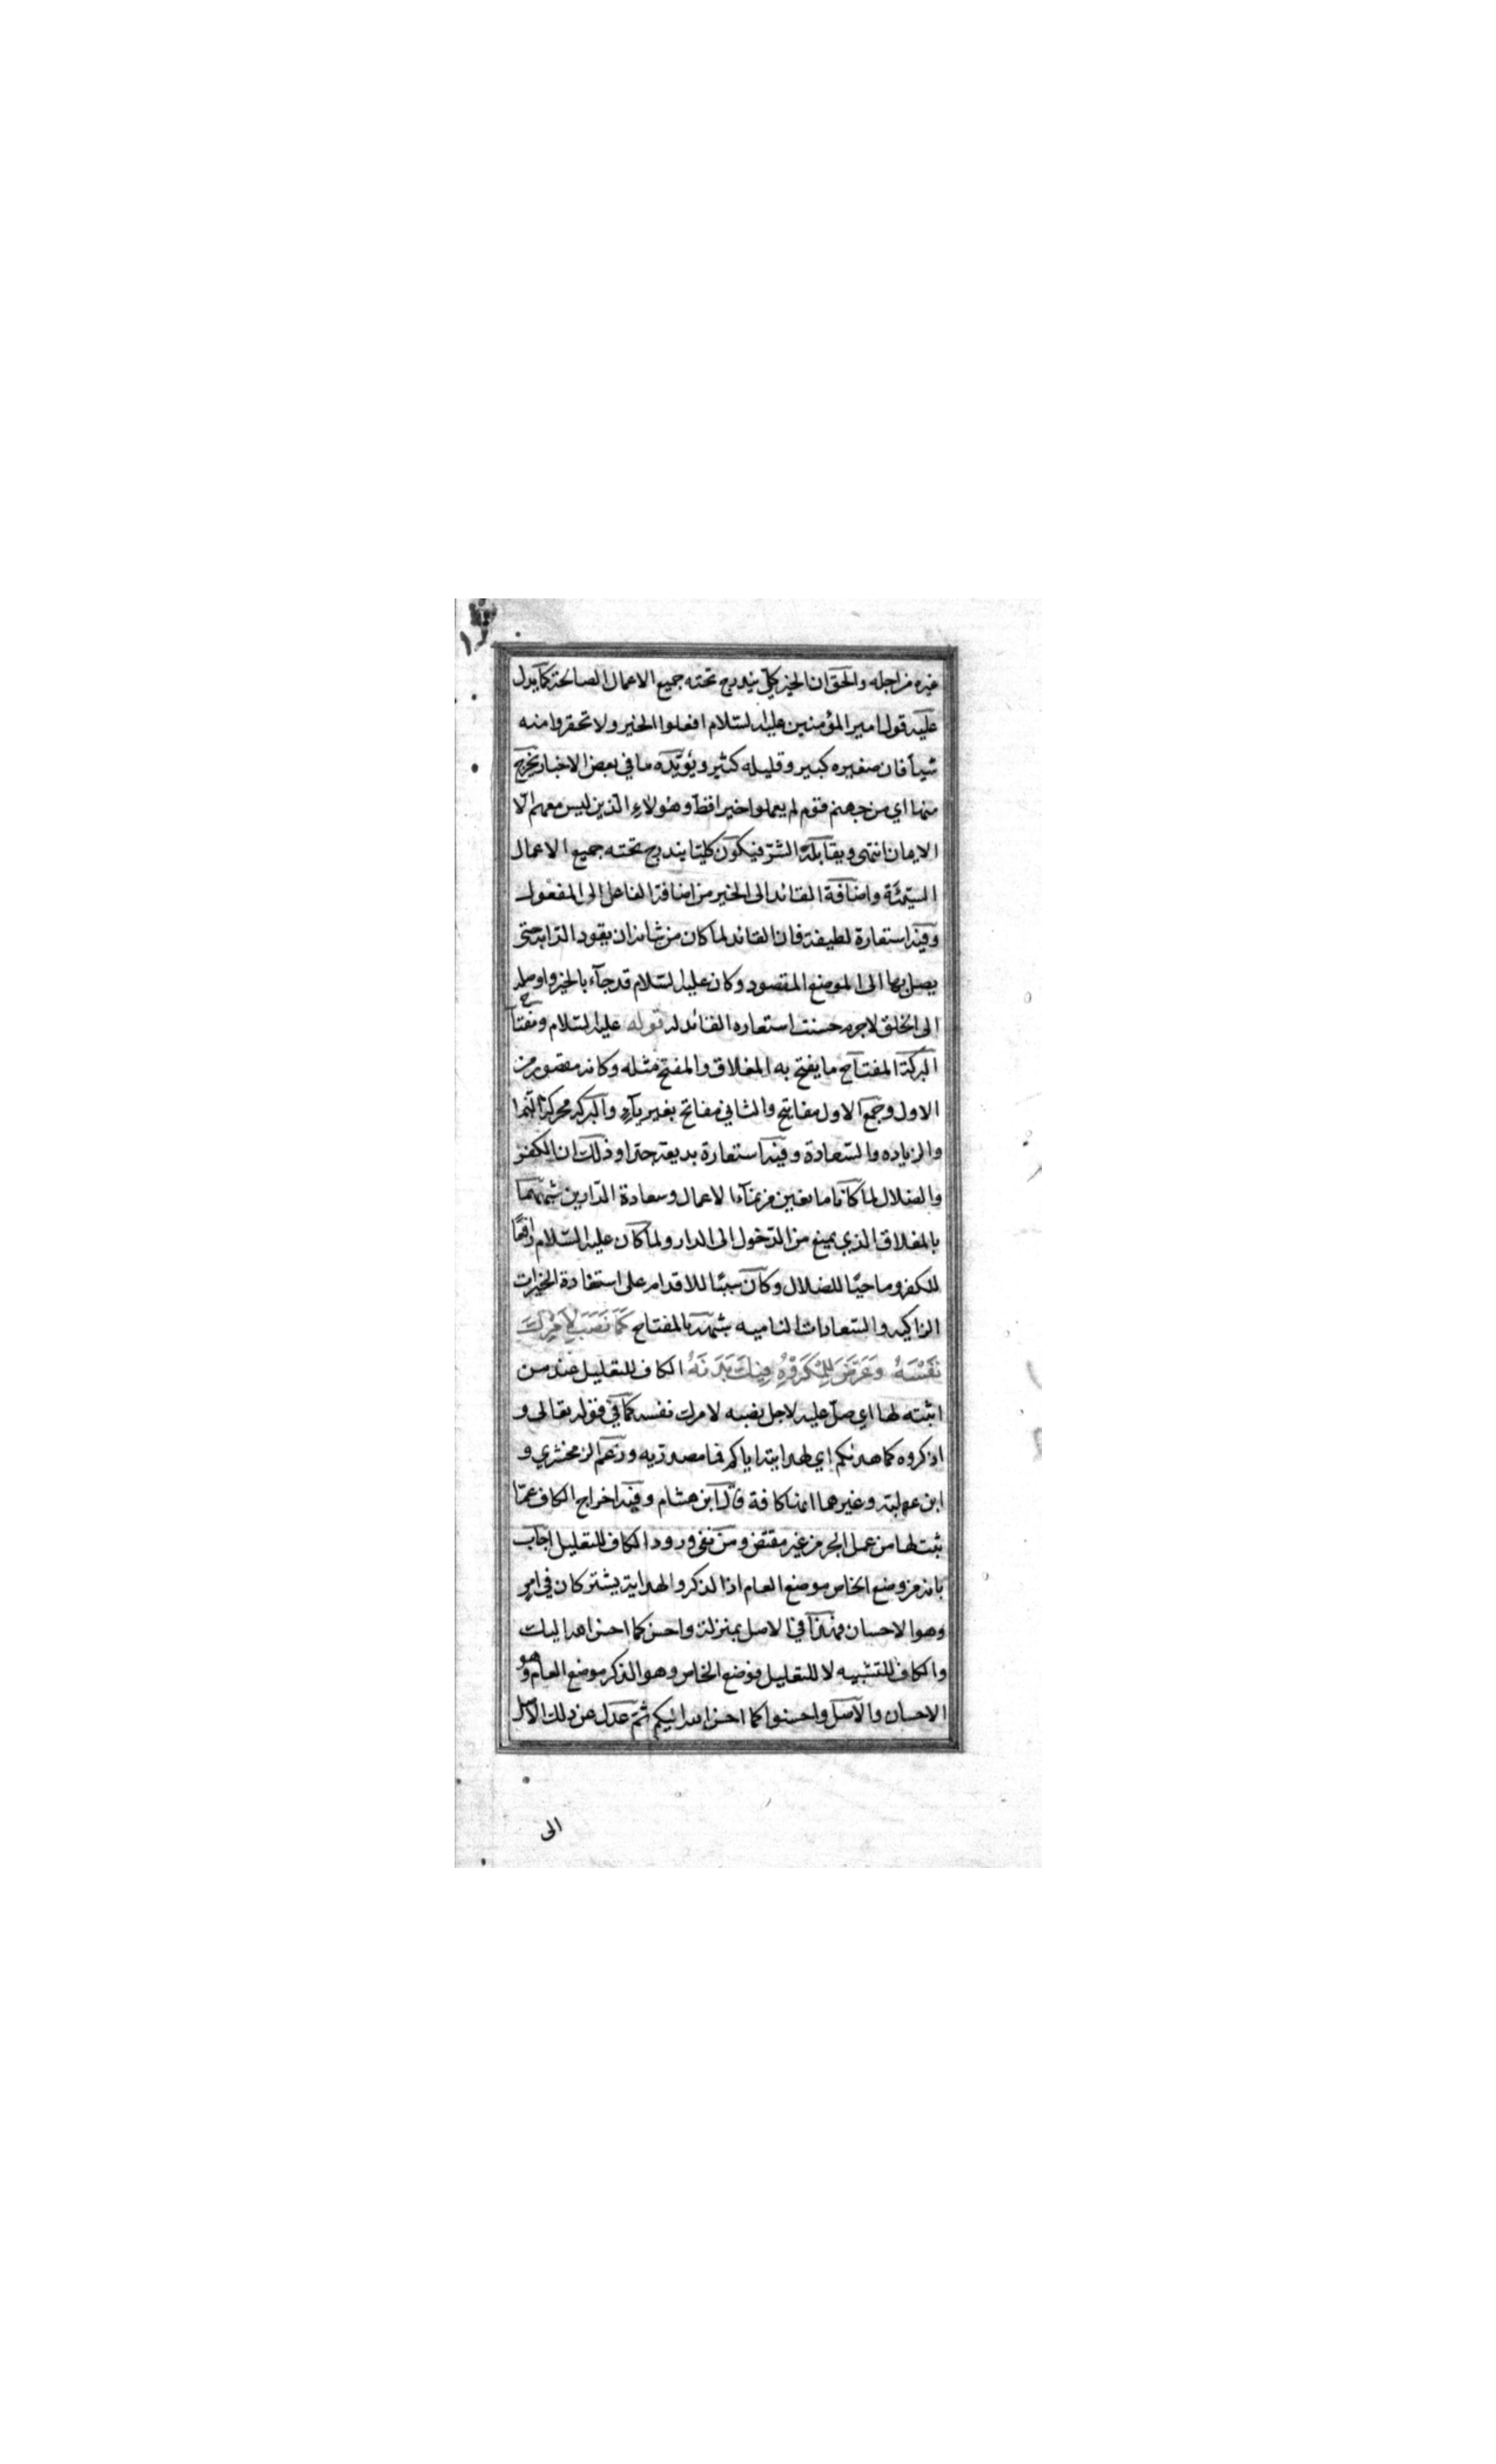 غيره من اجله والحق ان الخير كلي يندرج تحته جميع الاعمال الصالحة كما يدل
عليه قول امير المؤمنين عليه السلام افعلوا الخير ولا تحقروا منه
شيأ فان صغيره كبير وقليله كثير ويؤيّده ما في بعض الاخبار يخرج
منها اي من جهنم قوم لم يعملوا خيرا قط وهؤلاء الّذين ليس معهم الّا
الايمان انتهى ويقابله الشرّ فيكون كليّا يندرج تحته جميع الاعمال
السيّئة واضافة القائد الى الخير من اضافة الفاعل الى المفعول
وفيه استعارة لطيفة فان القائد لما كان من شانه ان يقود الدّابة حتى
يصل بها الى الموضع المقصود وكان عليه السّلام قد جآء بالخير واوصله
الى الخلق لاجرم حسنت استعاره القائد له قوله عليه السّلام ومفتاح
البركة المفتاح ما يفتح به المغلاق والمفتح مثله وكانه مقصور من
الاول وجمع الاول مفاتيح والثاني مفاتح بغير يآء والبركه محركة النّما
والزياده والسّعادة وفيه استعارة بديعة جدا وذلك ان الكفر
والضلال لما كانا مانعين من نمآء الاعمال وسعادة الدّارين شبّههما
بالمغلاق الذي يمنع من الدّخول الى الدار ولما كان عليه السّلام رافعًا
للكفر وماحيًا للضلال وكان سببًا للاقدام على استفادة الخيرات
الزاكيه والسّعادات الناميه شبّهه بالمفتاح كَمَا نَصَبَ لِأَمْرِكَ
نَفْسَهُ وَعَرَّضَ لِلْمَكْرُوْهِ فِيْكَ بَدَنَهُ الكاف للتعليل عند من
اثبته لها اي صلّ عليه لاجل نصبه لامرك نفسه كما في قوله تعالى و
اذكروه كما هدىكم اي لهدايته اياكم فما مصدرّيه وزعم الزمخشري و
ابن عطية وغيرهما انها كافة قال ابن هشام وفيه اخراج الكاف عمّا
ثبت لها من عمل الجر من غير مقتض ومن نفى ورود الكاف للتعليل اجاب
بانه من وضع الخاص موضع العام اذ الذكر والهداية يشتركان في امر
وهو الاحسان فهذا في الاصل بمنزلة واحسن كما احسن الله اليك
والكاف للتشبيه لا للتعليل فوضع الخاص وهو الذكر موضع العام وهو
الاحسان والاصل واحسنوا كما احسن الله اليكم ثمّ عدل عن ذلك الاصل
الى